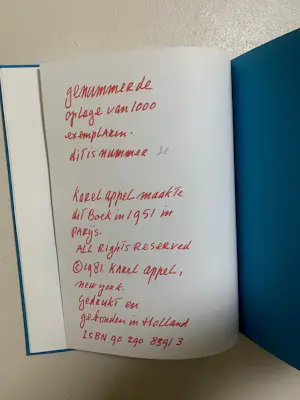 genummerde
oplage van 1000
exemplaren.
dit is nummer 32
Karel appel maakte
dit Boek in 1951 in
PARijs.
ALL RigHts RESERVED
©1981 KAREL Appel,
new york.
Gedrukt en
gebonden in Holland
ISBN 90 290 8391 3